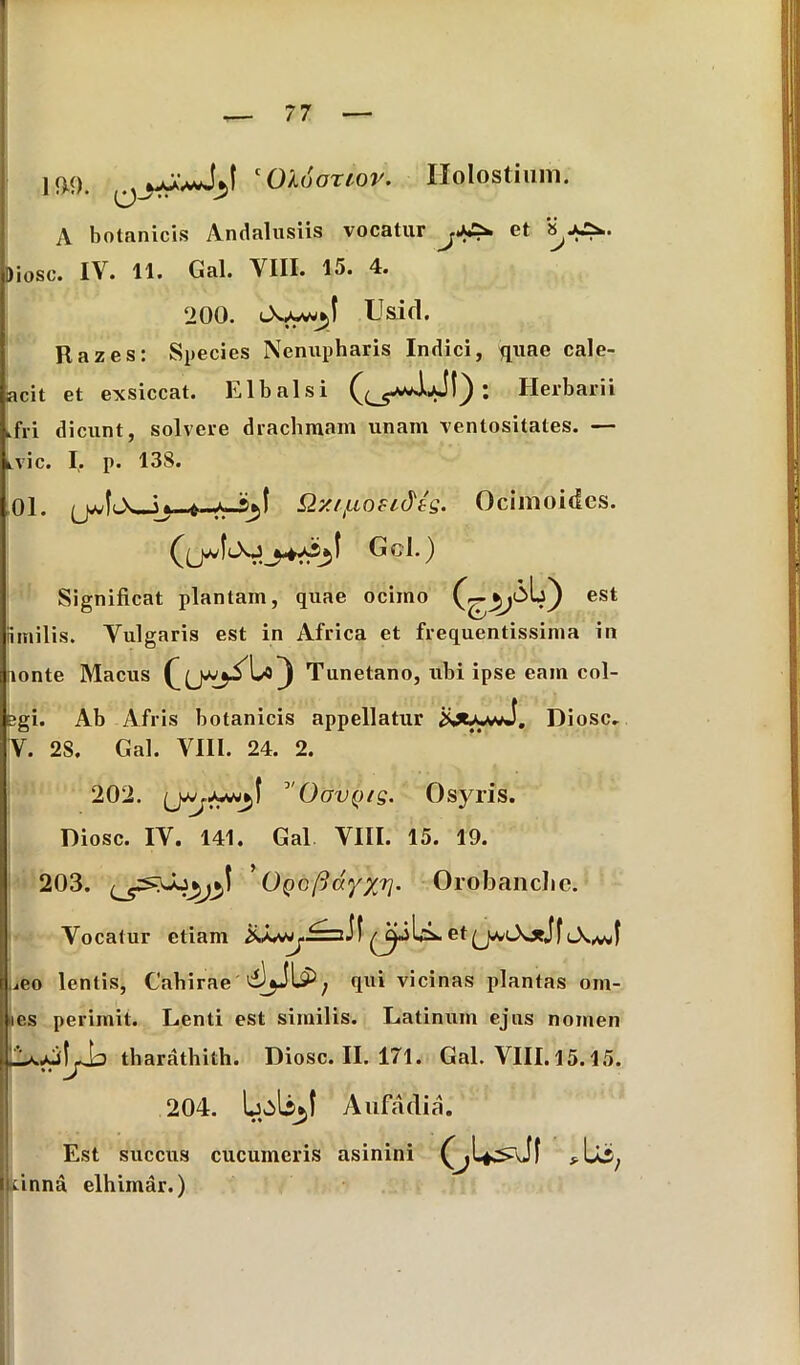 — 77 —
199. اولسطيون Ὁλόστιον. Holostium.
A botanicis Andalusiis vocatur خير et خيرة.
Diosc. IV. 11. Gal. VIII. 15. 4.
200. اوسيد Usid.
Razes: Species Nenupharis Indici, quae cale-
acit et exsiccat. Elbalsi (البلسي): Herbarii
fri dicunt, solvere drachmam unam ventositates. —
vic. I. p. 138.
01. اوقيمويداس Ωκιμοειδές. Ocimoides.
(اوقيموريداس Gol.)
Significat plantam, quae ocimo (باذروج) est
imilis. Vulgaris est in Africa et frequentissima in
onte Macus (ماكوس) Tunetano, ubi ipse eam col-
egi. Ab Afris botanicis appellatur لسيعة. Diosc.
V. 28. Gal. VIII. 24. 2.
202. اوسيريس Ὄσυρις. Osyris.
Diosc. IV. 141. Gal VIII. 15. 19.
203. اوروبنجي Ὀροβάγχη. Orobanche.
Vocatur etiam خانق الكرسنة et اسد العدس
eo lentis, Cahirae هالوك, qui vicinas plantas om-
es perimit. Lenti est similis. Latinum ejus nomen
طراثيث tharâthith. Diosc. II. 171. Gal. VIII. 15. 15.
204. اوفاديا Aufâdiâ.
Est succus cucumeris asinini (قثاء الحمار,
innâ elhimâr.)